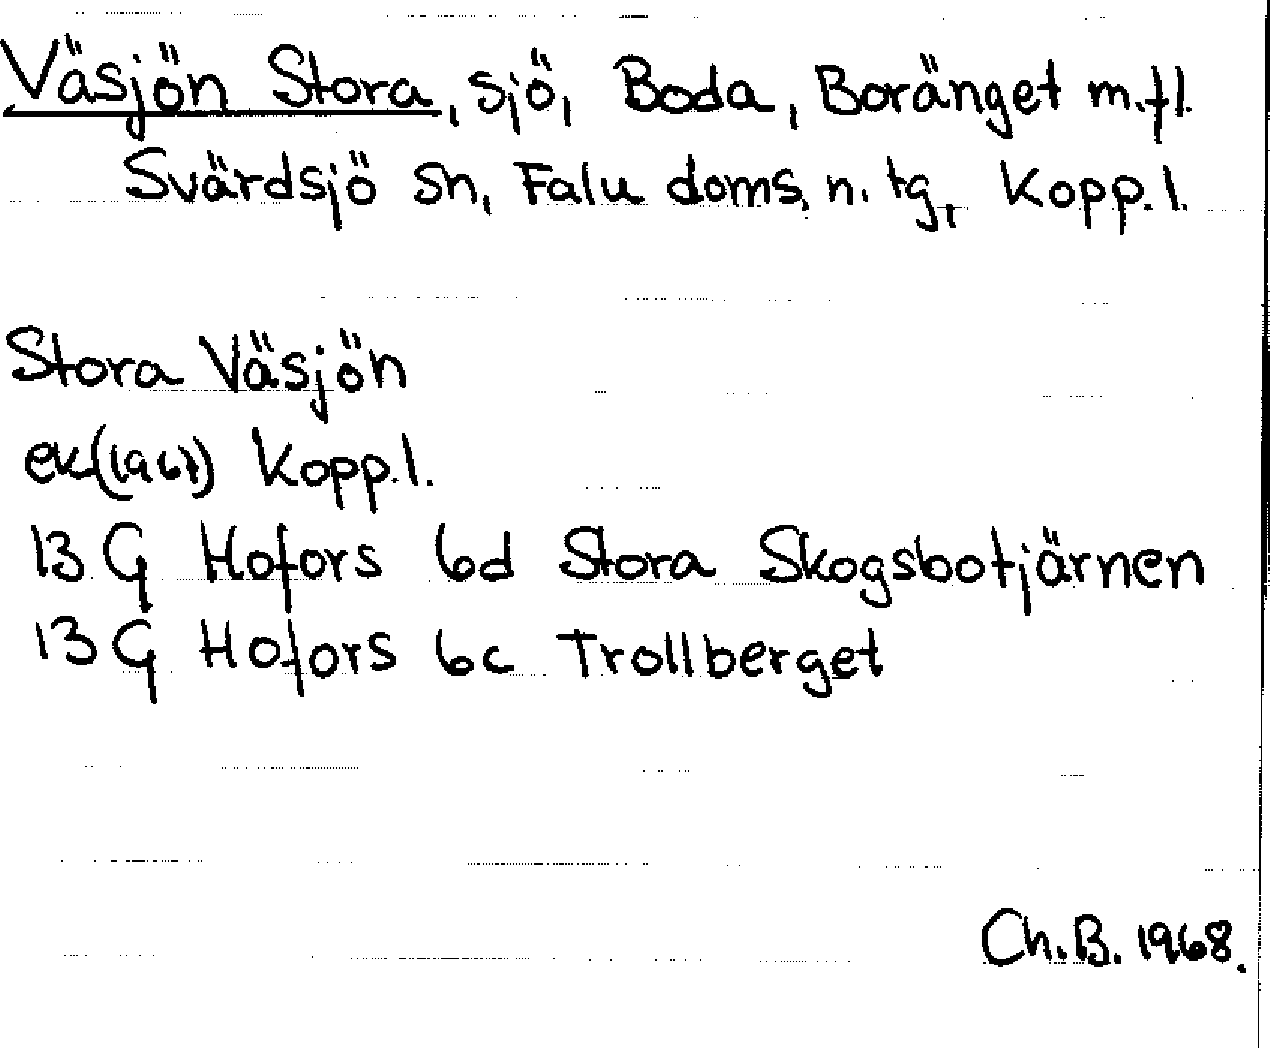 Väsjön Stora, sjö, Boda, Boränget m.fl.
Svärdsjö sn, Falu doms. n. tg, Kopp.l.
Stora Väsjön
ek(1967) Kopp.l.
13 G Hofors 6d Stora Skogsbotjärnen
13 G Hofors 6c Trollberget
Ch.B. 1968.